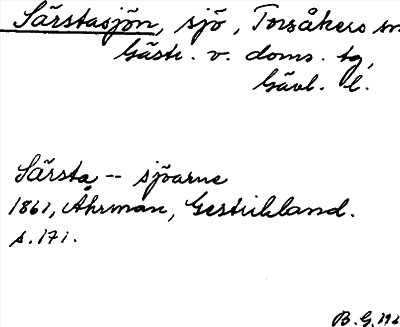 Särstasjön, sjö, Torsåkers sn
Gästr. v. doms. tg,
Gävl. l.
Särsta -- sjöarne
1861, Åhrman, Gestrikland.
s. 171.
B. G.